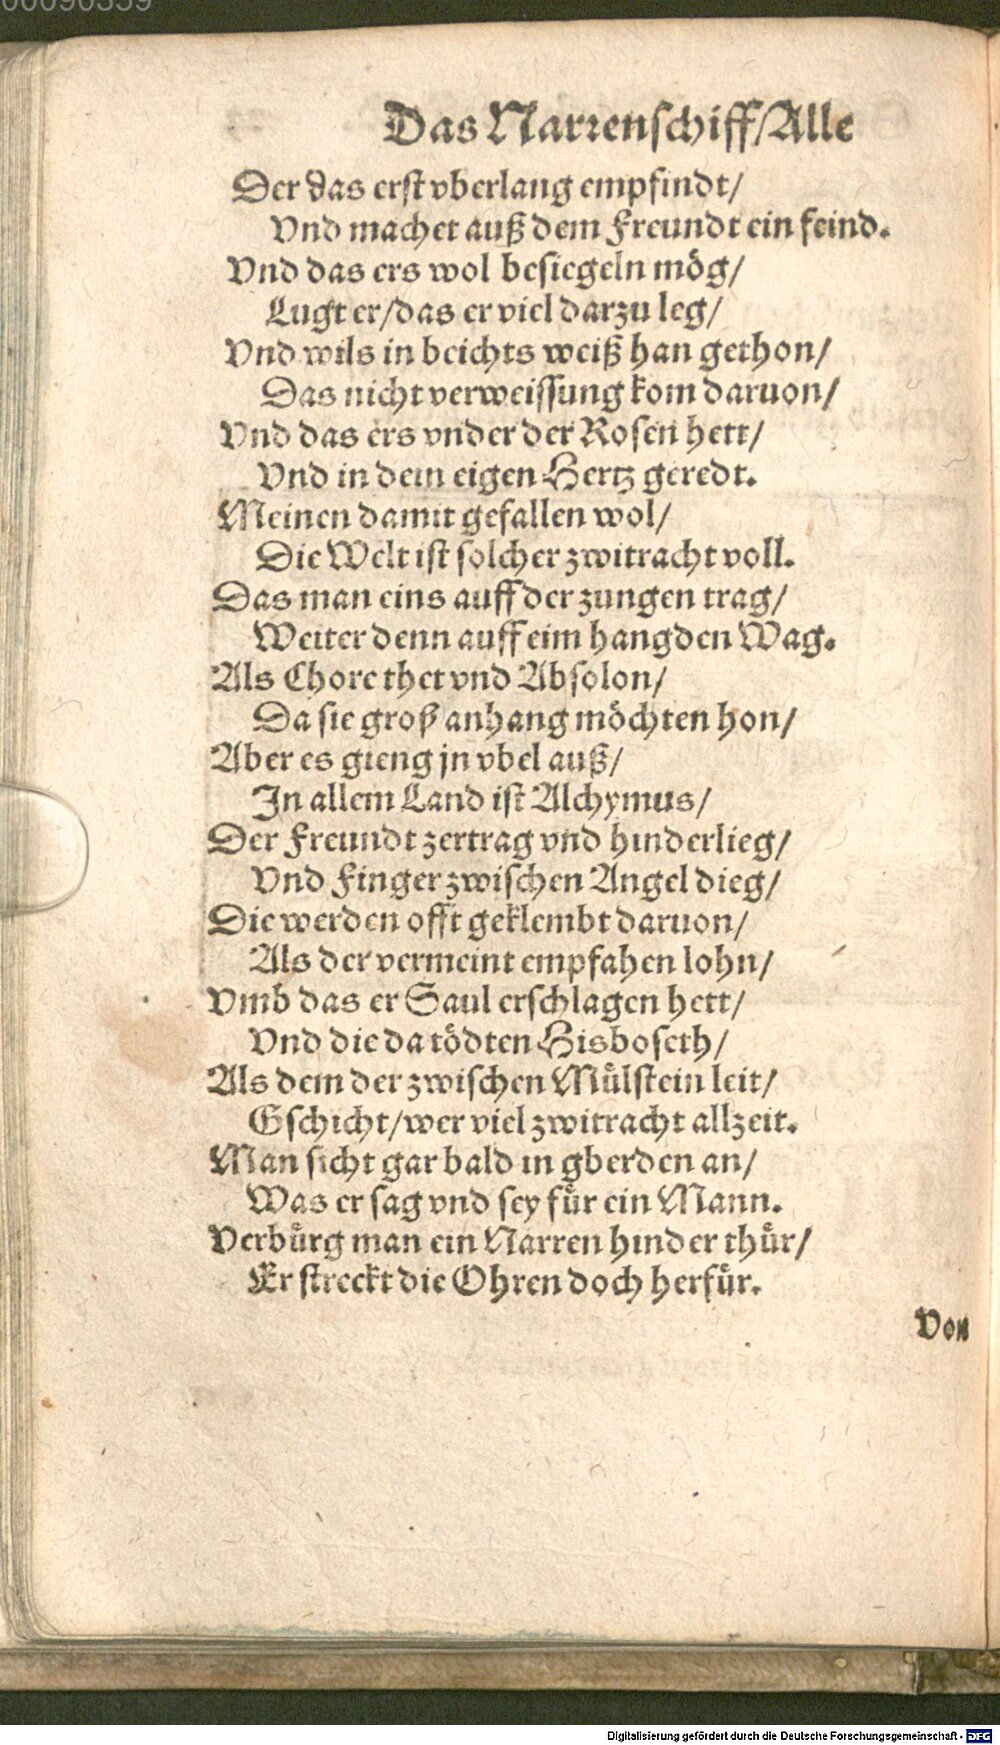 00090359
Das Narrenschiff/Alle
Der das erst vberlang empfindt/
Vnd machet auß dem Freundt ein feind.
Vnd das ers wol besiegeln mög/
Lugt er/das er viel darzu leg/
Vnd wils in beichts weiß han gethon/
Das nicht verweissung kom daruon/
Vnd das ers vnder der Rosen hett/
Vnd in dem eigen Hertz geredt.
Meinen damit gefallen wol/
Die Welt ist solcher zwitracht voll.
Das man eins auff der zungen trag/
Weiter denn auff eim hangden Wag.
Als Chore thet vnd Absolon/
Da sie groß anhang möchten hon/
Aber es gieng jn vbel auß/
In allem Land ist Alchymus/
Der Freundt zertrag vnd hinderlieg/
Vnd Finger zwischen Angel dieg/
Die werden offt geklembt daruon/
Als der vermeint empfahen lohn/
Vmb das er Saul erschlagen hett/
Vnd die da tödten Hisboseth/
Als dem der zwischen Mülstein leit/
Gschicht/wer viel zwitracht allzeit.
Man sicht gar bald in gberden an/
Was er sag vnd sey für ein Mann.
Verbürg man ein Narren hinder thür/
Er streckt die Ohren doch herfür.
Von
Digitalisierung gefördert durch die Deutsche Forschungsgemeinschaft - DFG